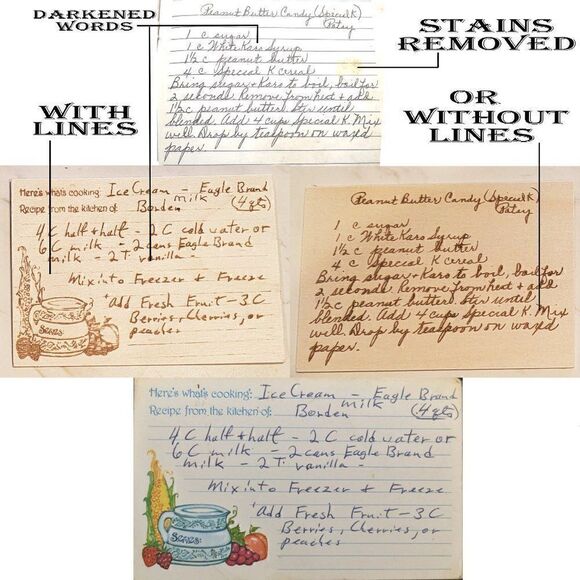 DARKENED
WORDS
WITH
LINES
STAINS
REMOVED
OR
WITHOUT
LINES
Peanut Butter Candy (Special K)
Patsy
1 c sugar
1 c White Karo Syrup
1½ c peanut butter
4 c Special K cereal
Bring sugar + Karo to boil, boil for
2 seconds. Remove from heat + add
1½ c peanut butter. Ster until
blended. Add 4 cups Special K. Mix
well. Drop by teaspoon on waxed
paper.
Here's what's cooking: Ice Cream – Eagle Brand
milk
Recipe from the kitchen of: Borden (4 qts)
4 C half + half – 2 C cold water or
6 C milk – 2 cans Eagle Brand
milk – 2 T. vanilla –
Mix into Freezer & Freeze
Add Fresh Fruit – 3 C
Berries, Cherries, or
peaches
Peanut Butter Candy (Special K)
Patsy
1 c sugar
1 c White Karo Syrup
1½ c peanut butter
4 c Special K cereal
Bring sugar + Karo to boil, boil for
2 seconds. Remove from heat + add
1½ c peanut butter. Ster until
blended. Add 4 cups Special K. Mix
well. Drop by teaspoon on waxed
paper.
Here's what's cooking: Ice Cream – Eagle Brand
milk
Recipe from the kitchen of: Borden (4 qts)
4 C half + half – 2 C cold water or
6 C milk – 2 cans Eagle Brand
milk – 2 T. vanilla –
Mix into Freezer & Freeze
Add Fresh Fruit – 3 C
Berries, Cherries, or
peaches